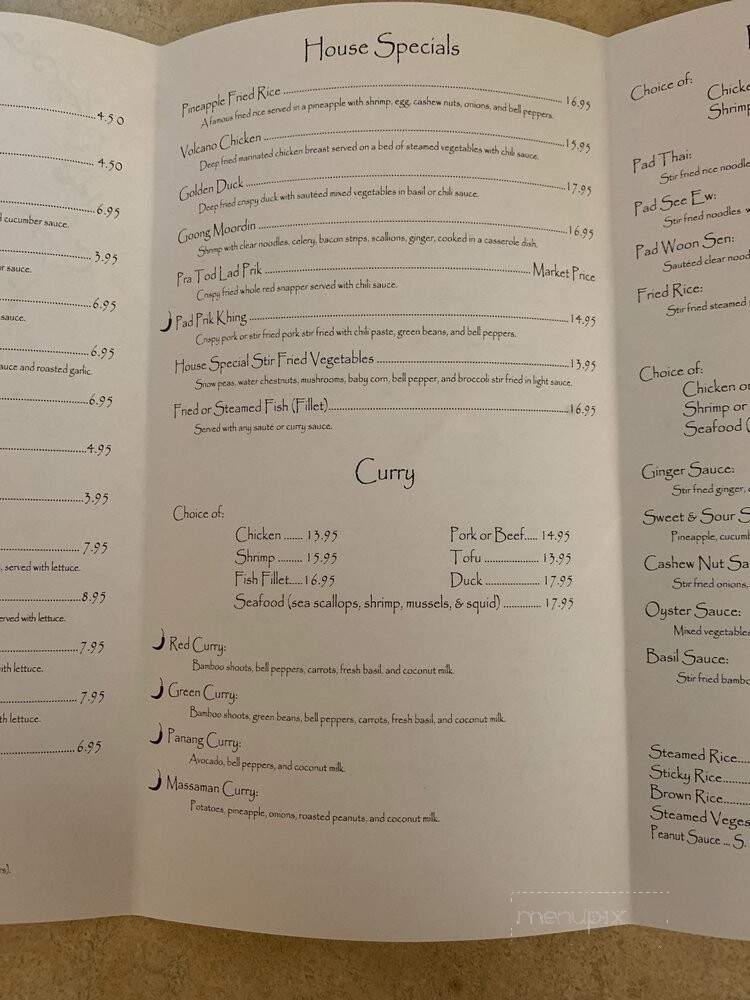 4.50
4.50
6.95
cucumber sauce.
3.95
sauce.
6.95
sauce.
6.95
sauce and roasted garlic.
6.95
4.95
3.95
7.95
, served with lettuce.
8.95
served with lettuce.
7.95
with lettuce.
7.95
with lettuce.
6.95
House Specials
Pineapple Fried Rice 16.95
A famous fried rice served in a pineapple with shrimp, egg, cashew nuts, onions, and bell peppers.
Volcano Chicken 15.95
Deep fried marinated chicken breast served on a bed of steamed vegetables with chili sauce.
Golden Duck 17.95
Deep fried crispy duck with sautéed mixed vegetables in basil or chili sauce.
Goong Moordin 16.95
Shrimp with clear noodles, celery, bacon strips, scallions, ginger, cooked in a casserole dish.
Pra Tod Lad Prik Market Price
Crispy fried whole red snapper served with chili sauce.
Pad Prik Khing 14.95
Crispy pork or stir fried pork stir fried with chili paste, green beans, and bell peppers.
House Special Stir Fried Vegetables 13.95
Snow peas, water chestnuts, mushrooms, baby corn, bell pepper, and broccoli stir fried in light sauce.
Fried or Steamed Fish (Fillet) 16.95
Served with any sauté or curry sauce.
Curry
Choice of:
Chicken ...... 13.95 Pork or Beef..... 14.95
Shrimp ........ 15.95 Tofu ..................... 13.95
Fish Fillet.....16.95 Duck ..................... 17.95
Seafood (sea scallops, shrimp, mussels, & squid) ............. 17.95
Red Curry:
Bamboo shoots, bell peppers, carrots, fresh basil, and coconut milk.
Green Curry:
Bamboo shoots, green beans, bell peppers, carrots, fresh basil, and coconut milk.
Panang Curry:
Avocado, bell peppers, and coconut milk.
Massaman Curry:
Potatoes, pineapple, onions, roasted peanuts, and coconut milk.
Choice of: Chicke
Shrimp
Pad Thai:
Stir fried rice noodle
Pad See Ew:
Stir fried noodles w
Pad Woon Sen:
Sautéed clear nood
Fried Rice:
Stir fried steamed
Choice of:
Chicken or
Shrimp or
Seafood (
Ginger Sauce:
Stir fried ginger,
Sweet & Sour S
Pineapple, cucumb
Cashew Nut Sa
Stir fried onions,
Oyster Sauce:
Mixed vegetable
Basil Sauce:
Stir fried bambo
Steamed Rice....
Sticky Rice........
Brown Rice........
Steamed Veges
Peanut Sauce ... S.
menupix